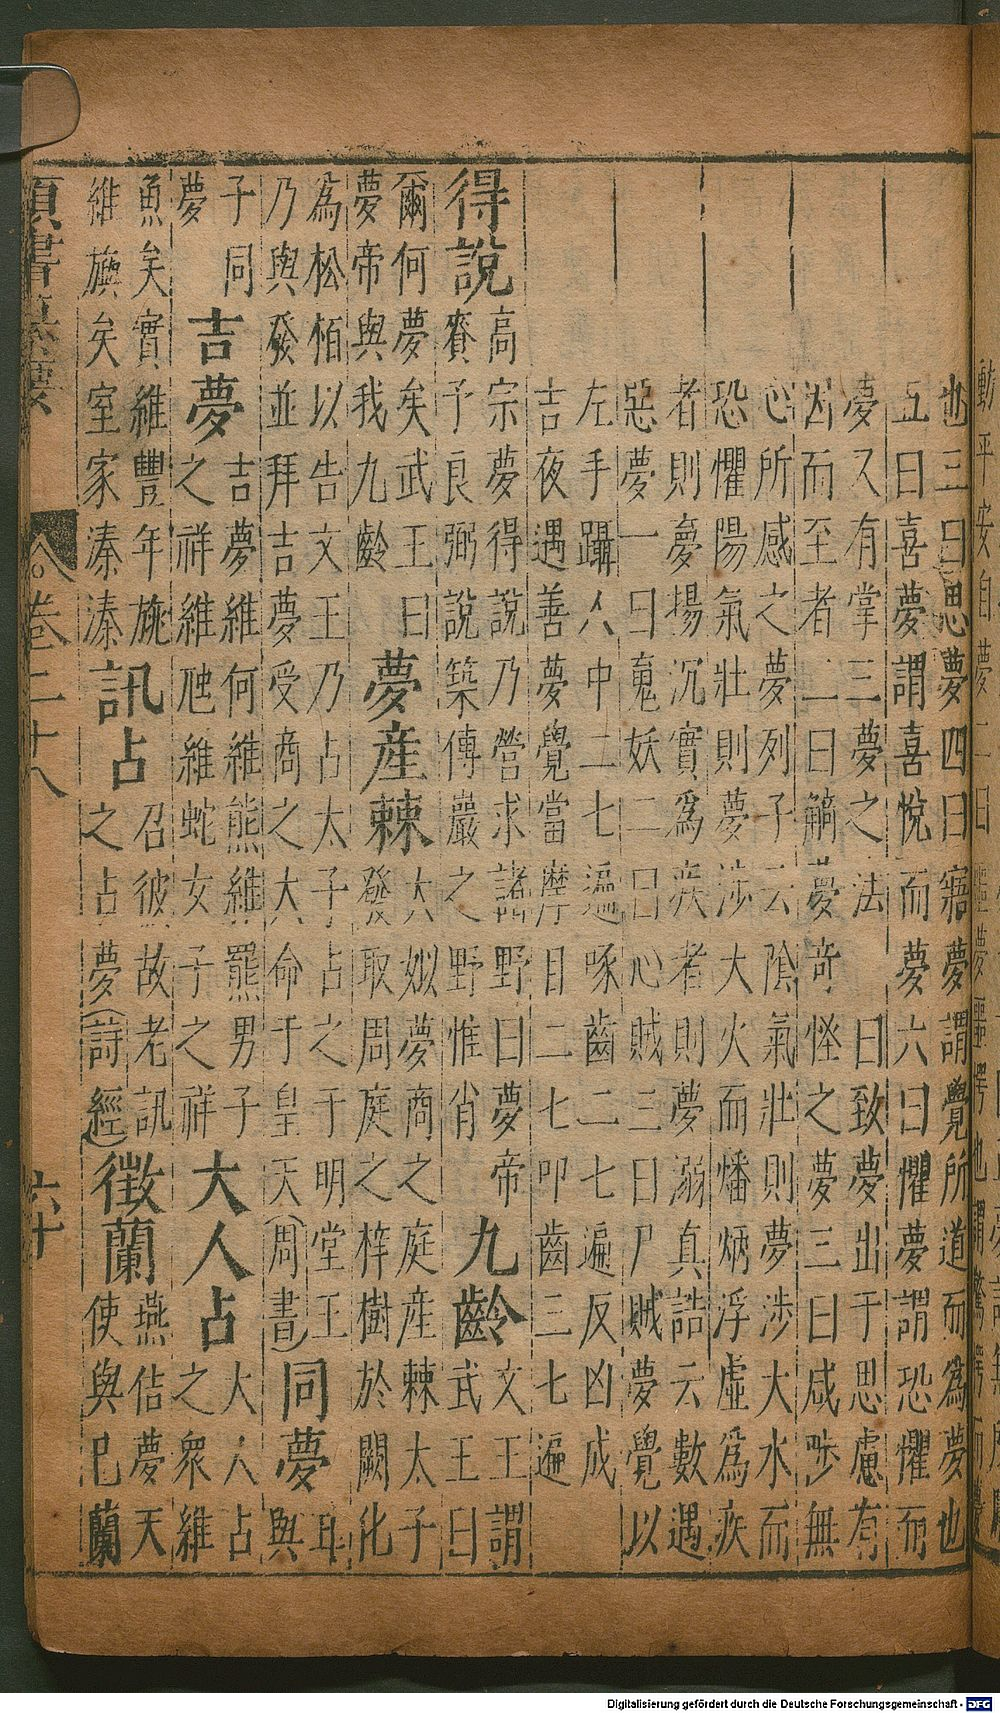 也三曰思夢四曰寤夢謂覺所道而爲夢也
五曰喜夢謂喜悅而夢六曰懼夢謂恐懼而
夢又有掌三夢之法 曰致夢出于思慮有
因而至者二曰觭夢奇怪之夢三曰咸陟無
心所感之夢列子云陰氣壯則夢涉大水而
恐懼陽氣壯則夢涉大火而燔炳浮虛爲疾
者則夢揚沉實爲疾者則夢溺真誥云數遇
惡夢一曰䰟妖二曰心賊三曰尸賊夢覺以
左手躡人中二七遍啄齒二七遍反凶成
吉夜遇善夢覺當摩目二七叩齒三七遍
得說
高宗夢得說乃營求諸野曰夢帝
賚予良弼說築傅巖之野惟肖
九齡
文王謂
武王曰
爾何夢矣武王曰
夢帝與我九齡
夢産棘
大姒夢商之庭産棘太子
發取周庭之梓樹於闕化
爲松栢以告文王乃占太子占之于明堂王
乃與發並拜吉夢受商之大命于皇天(周書)
同夢
耳
與
子同
夢
吉夢
吉夢維何維熊維羆男子
之祥維虺維蛇女子之祥
大人占
大人占
之衆維
魚矣實維豐年旐
維旟矣室家溱溱
訊占
召彼故老訊
之占夢(詩經)
徵蘭
燕佶夢天
使與己蘭
卷二十八
六十
Digitalisierung gefördert durch die Deutsche Forschungsgemeinschaft - DFG